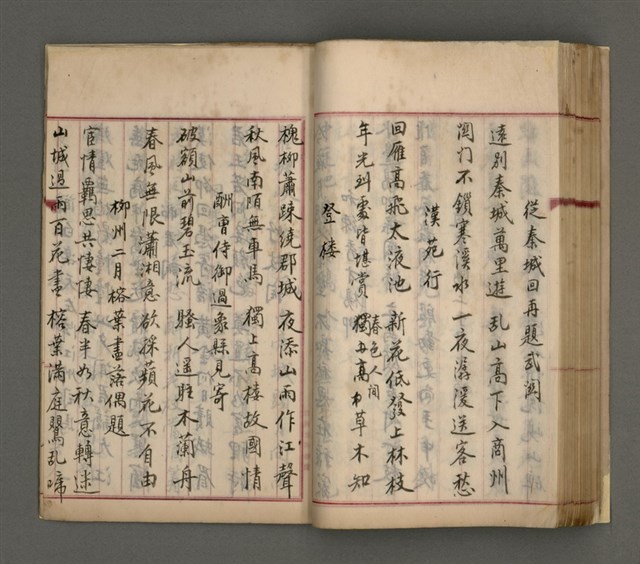 從秦城回再題武関
遠別秦城萬里遊 乱山高下入商州
関门不鎖寒溪水 一夜潺湲送客愁
漢苑行
回雁高飛太液池 新花低發上林枝
年光到處皆堪賞 春色人間 獨高中草木知
登楼
槐柳蕭疎繞郡城 夜添山雨作江聲
秋風南陌無車馬 獨上高樓故國情
酬曹侍御過象縣見寄
破額山前碧玉流 騷人遥駐木蘭舟
春風無限瀟湘意 欲採蘋花不自由
柳州二月榕葉盡落偶題
宦情羈思共悽悽 春半如秋意轉迷
山城過雨百花盡 榕葉滿庭鶯乱啼